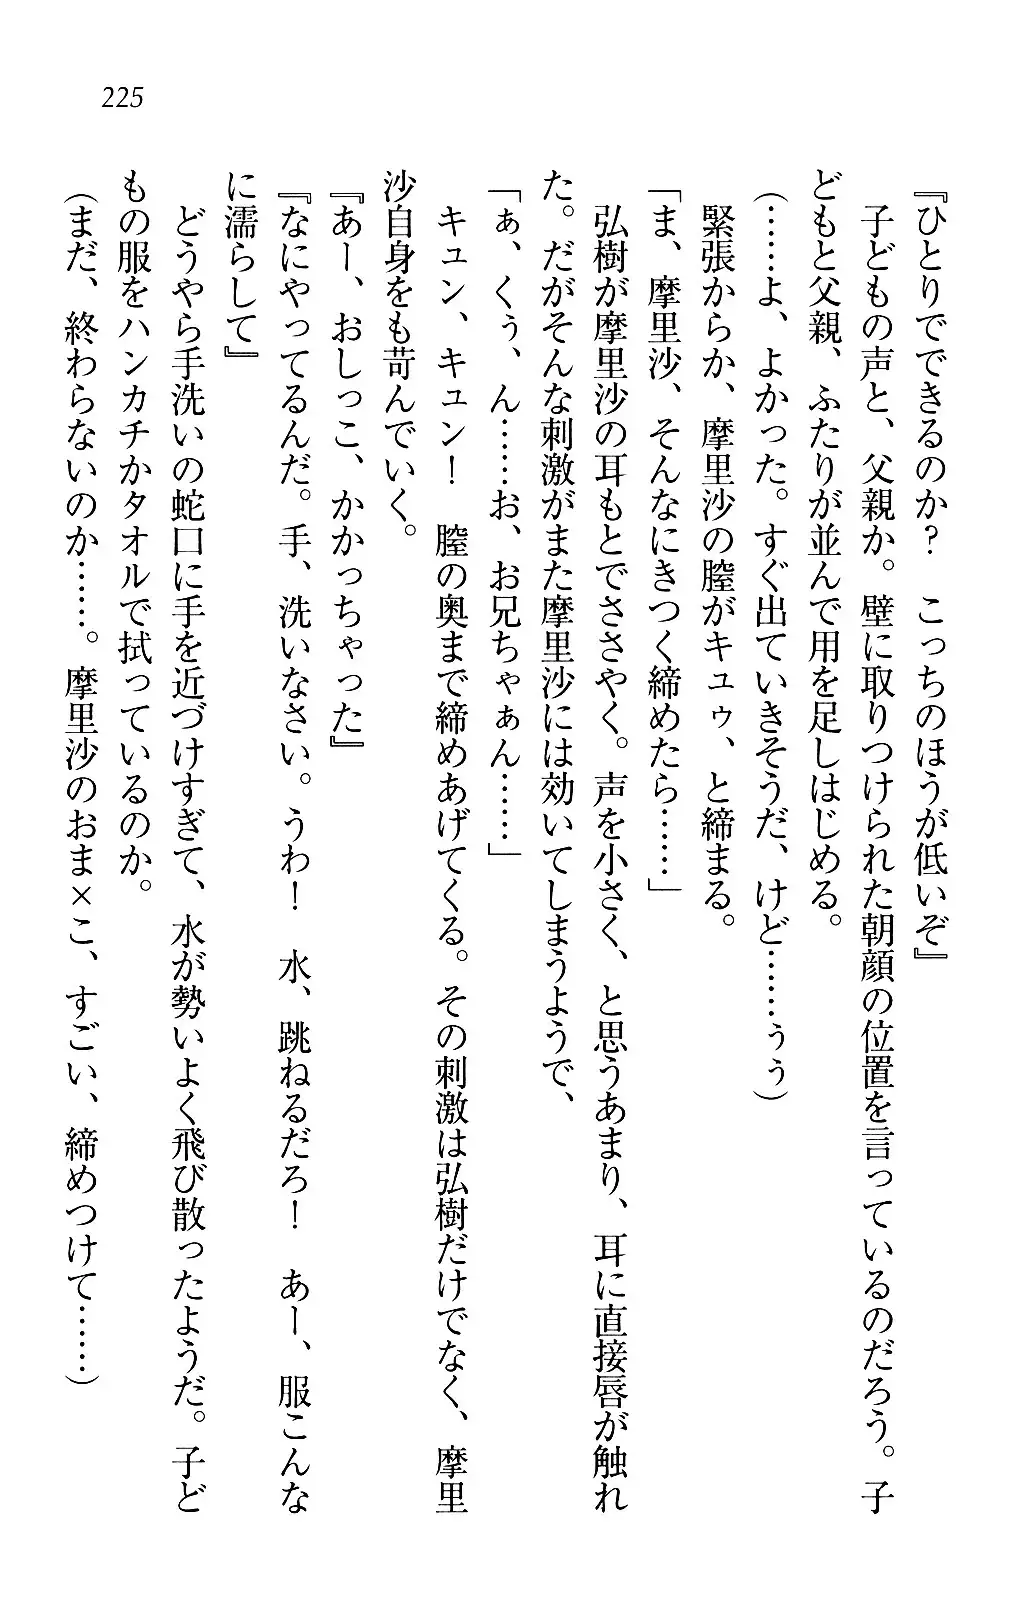 225
『ひとりでできるのか？　こっちのほうが低いぞ』
　子どもの声と、父親か。壁に取りつけられた朝顔の位置を言っているのだろう。子
どもと父親、ふたりが並んで用を足しはじめる。
（……よ、よかった。すぐ出ていきそうだ、けど……ぅぅ）
　緊張からか、摩里沙の膣がキュゥ、と締まる。
「ま、摩里沙、そんなにきつく締めたら……」
　弘樹が摩里沙の耳もとでささやく。声を小さく、と思うあまり、耳に直接唇が触れ
た。だがそんな刺激がまた摩里沙には効いてしまうようで、
「ぁ、くぅ、ん……お、お兄ちゃぁん……」
　キュン、キュン！　膣の奥まで締めあげてくる。その刺激は弘樹だけでなく、摩里
沙自身をも苛んでいく。
『あー、おしっこ、かかっちゃった』
『なにやってるんだ。手、洗いなさい。うわ！　水、跳ねるだろ！　あー、服こんな
に濡らして』
　どうやら手洗いの蛇口に手を近づけすぎて、水が勢いよく飛び散ったようだ。子ど
もの服をハンカチかタオルで拭っているのか。
（まだ、終わらないのか……。摩里沙のおま×こ、すごい、締めつけて……）